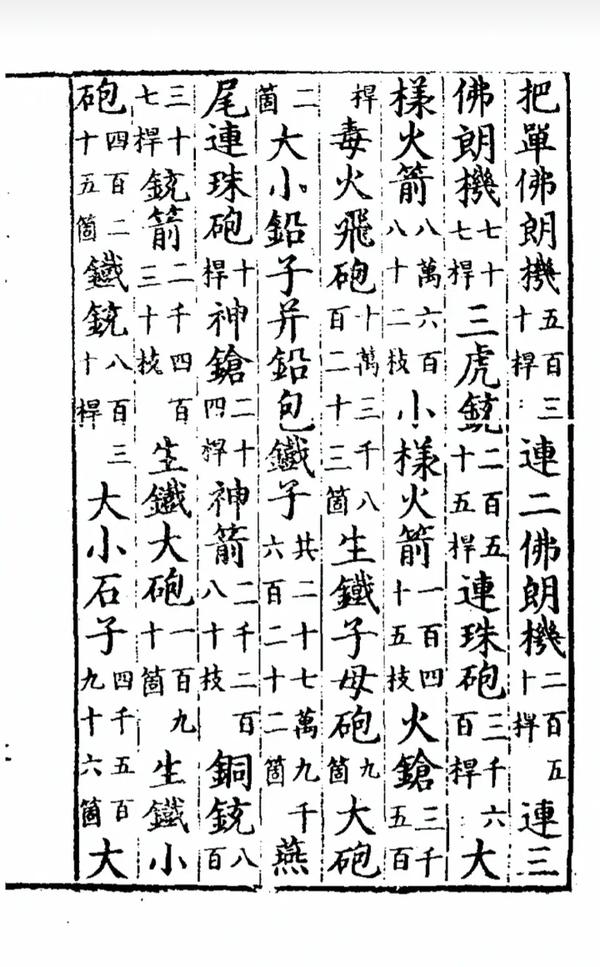 把單佛朗機五百三十桿連二佛朗機二百五十桿連三
佛朗機七十七桿三虎銃二百五十五桿連珠砲三千六百桿大
樣火箭八萬六百八十二枝小樣火箭一百四十五枝火鎗三千五百
桿毒火飛砲十萬三千八百二十三箇生鐵子母砲九箇大砲
二箇大小鉛子并鉛包鐵子共二十七萬九千六百二十二箇燕
尾連珠砲十桿神鎗二十四桿神箭二千二百八十枝銅銃八百
三十七桿銃箭二千四百三十枝生鐵大砲一百九十箇生鐵小
砲四百二十五箇鐵銃八百三十桿大小石子四千五百九十六箇大